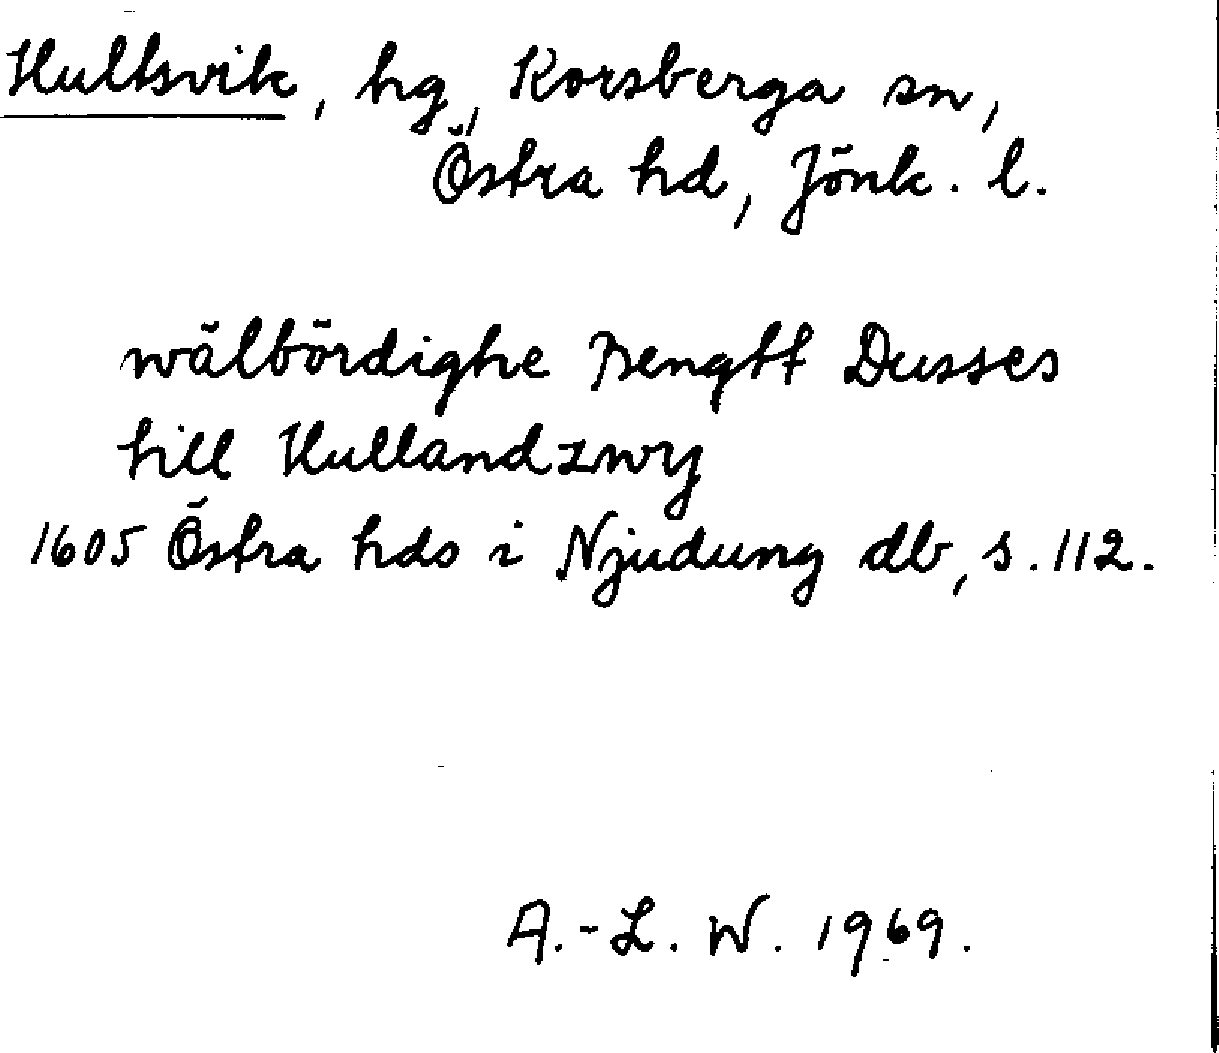 Hultsvik, hg, Korsberga sn,
Östra hd, Jönk. l.
wälbördighe Bengtt Dusses
till Hullandzwy
1605 Östra hds i Njudung db, s. 112.
A.-L. W. 1969.